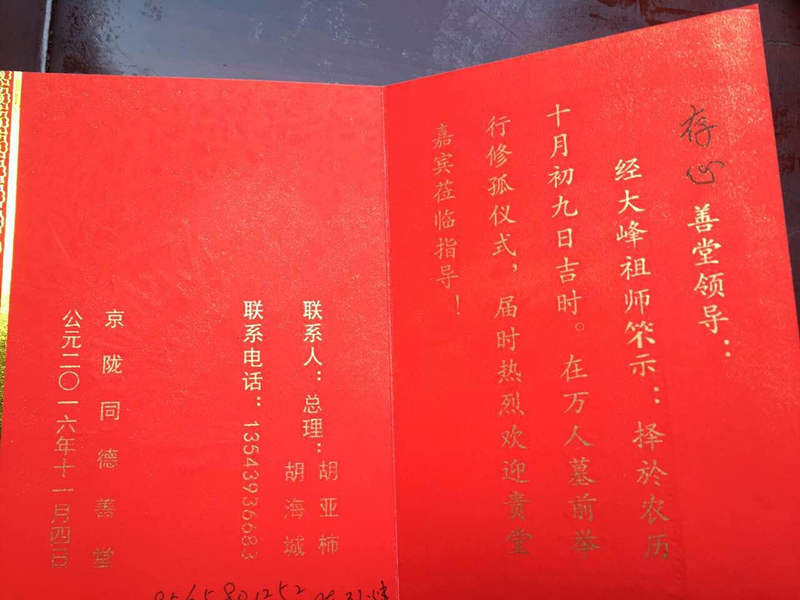 存心善堂领导：
经大峰祖师笊示：择於农历
十月初九日吉时。在万人墓前举
行修孤仪式，届时热烈欢迎贵堂
嘉宾莅临指导！
联系人：总理：胡亚柿
胡海城
联系电话：13543936683
京陇同德善堂
公元二〇一六年十一月四日